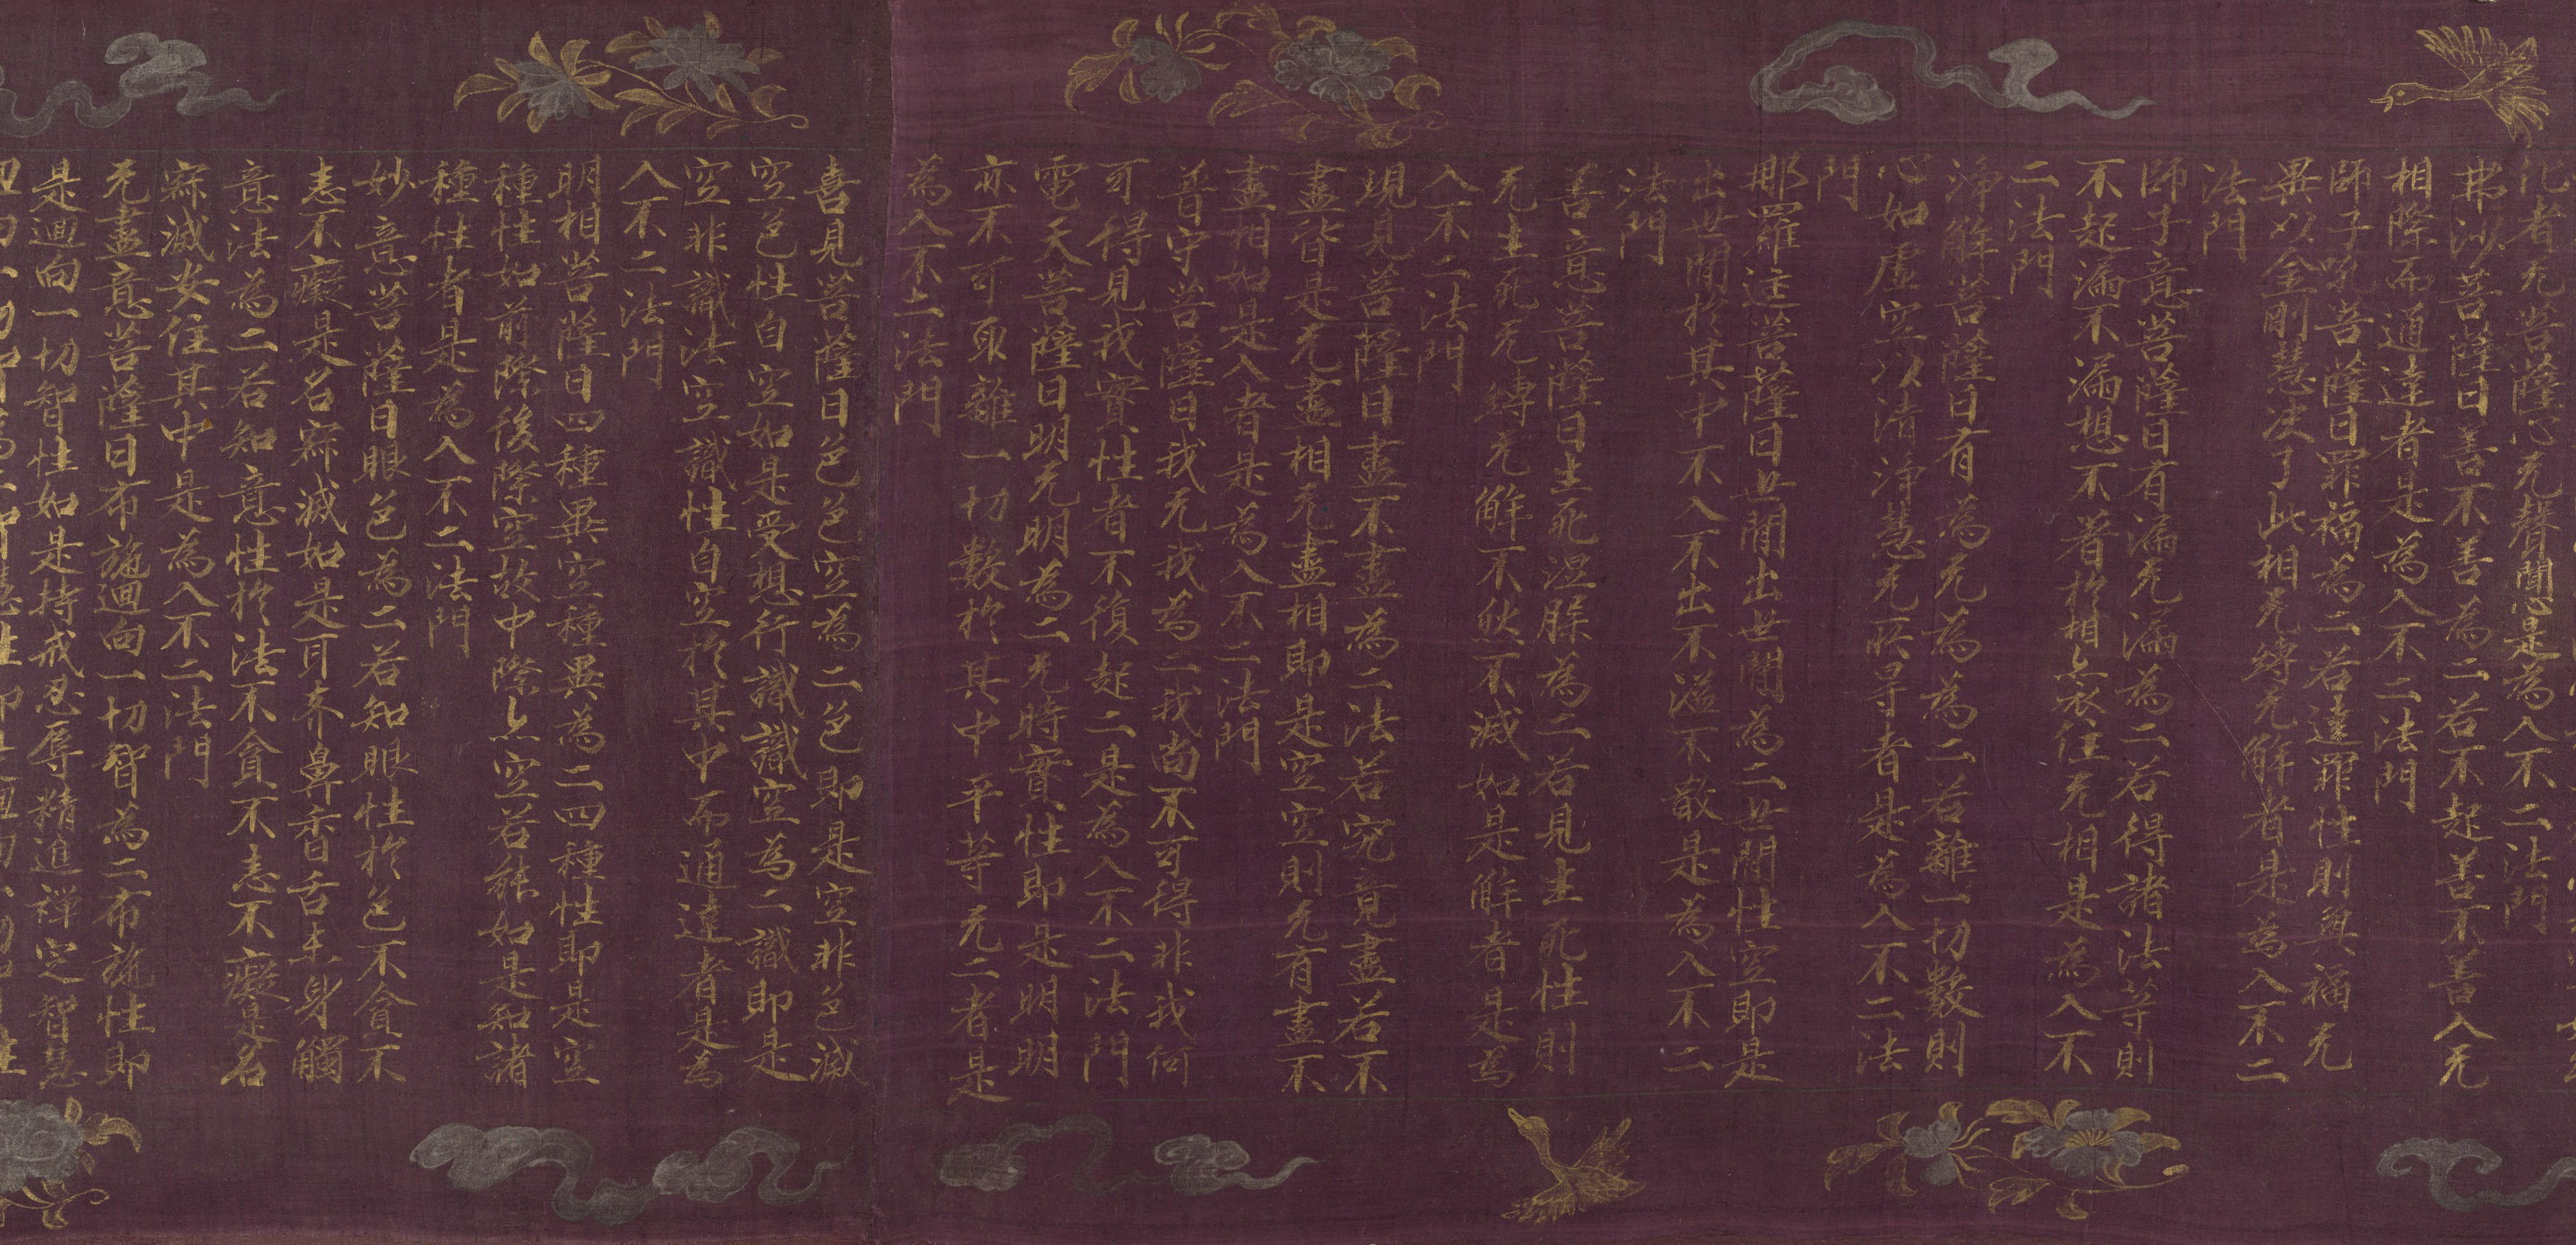 化者无菩薩心无聲聞心是為入不二法門
弗沙菩薩曰善不善為二若不起善不善入无
相際而通達者是為入不二法門
師子吼菩薩曰罪福為二若達罪性則與福无
異以金剛慧決了此相无縛无解者是為入不二
法門
師子意菩薩曰有漏无漏為二若得諸法等則
不起漏不漏想不著於相亦不住无相是為入不
二法門
淨解菩薩曰有為无為為二若離一切數則
心如虛空以清淨慧无所导者是為入不二法
門
那羅延菩薩曰世間出世間為二世間性空即是
出世間於其中不入不出不溢不散是為入不二
法門
善意菩薩曰生死涅槃為二若見生死性則
无生死无縛无解不然不滅如是解者是為
入不二法門
現見菩薩曰盡不盡為二法若究竟盡若不
盡皆是无盡相无盡相即是空空則无有盡不
盡相如是入者是為入不二法門
普守菩薩曰我无我為二我尚不可得非我何
可得見我實性者不復起二是為入不二法門
電天菩薩曰明无明為二无時實性即是明明
亦不可取離一切數於其中平等无二者是
為入不二法門
喜見菩薩曰色色空為二色即是空非色滅
空色性自空如是受想行識識空為二識即是
空非識法空識性自空於其中而通達者是為
入不二法門
明相菩薩曰四種異空種異為二四種性即是空
種性如前際後際空故中際亦空若能如是知諸
種性者是為入不二法門
妙意菩薩曰眼色為二若知眼性於色不貪不
恚不癡是名寂滅如是耳聲鼻香舌味身觸
意法為二若知意性於法不貪不恚不癡是名
寂滅安住其中是為入不二法門
无盡意菩薩曰布施迴向一切智為二布施性即
是迴向一切智性如是持戒忍辱精進禪定智慧